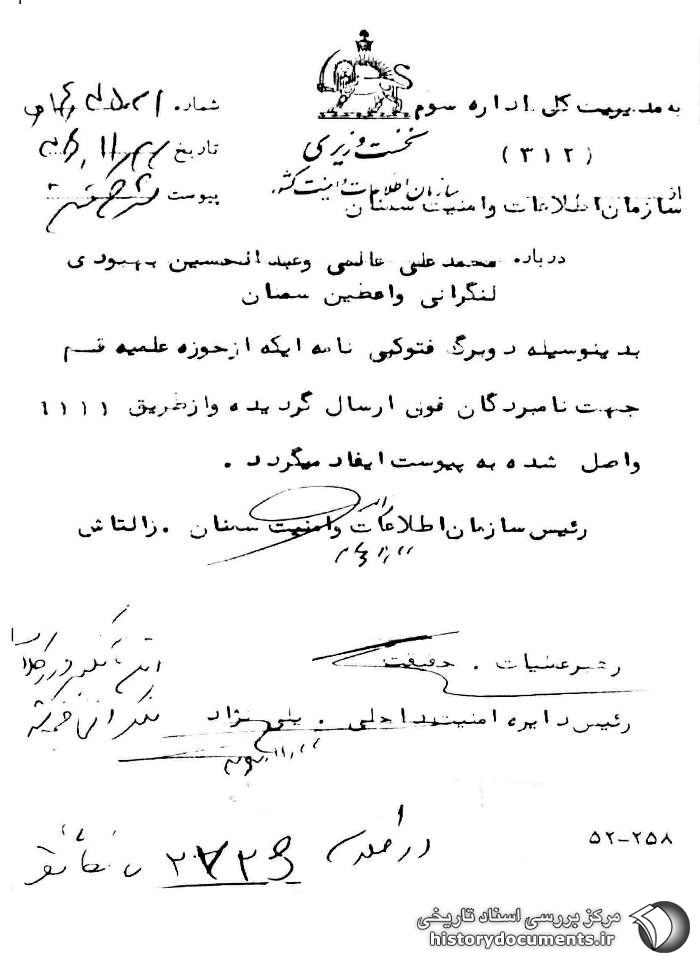 به مدیریت کل اداره سوم
(۳۱۲)
از
سازمان اطلاعات و امنیت سمنان
نخست وزیری
سازمان اطلاعات و امنیت کشور
شماره
تاریخ
پیوست
درباره محمدعلی عالمی و عبدالحسین بهبودی
لنگرانی واعظین سمنان
بدینوسیله دوبرگ فتوکپی نامه ایکه از حوزه علمیه قم
جهت نامبردگان فوق ارسال گردیده و از طریق ۱۱۱۱
واصل شده به پیوست ایفاد میگردد .
رئیس سازمان اطلاعات و امنیت سمنان . زالتاش
رهبر عملیات . حقیقت
رئیس دایره امنیت داخلی . یلی نژاد
۵۲-۲۵۸
مرکز بررسی اسناد تاریخی
historydocuments.ir